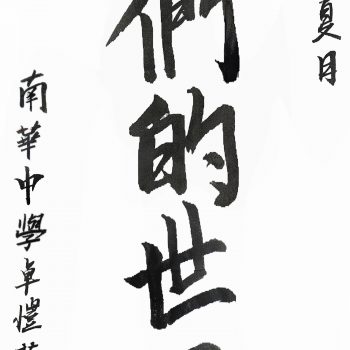 夏月
們的世
南華中學卓愷